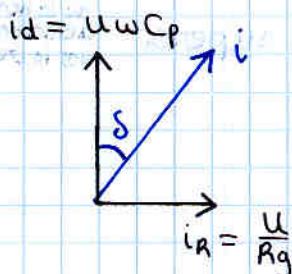 id = uωCp
i
δ
iR = u/Rg